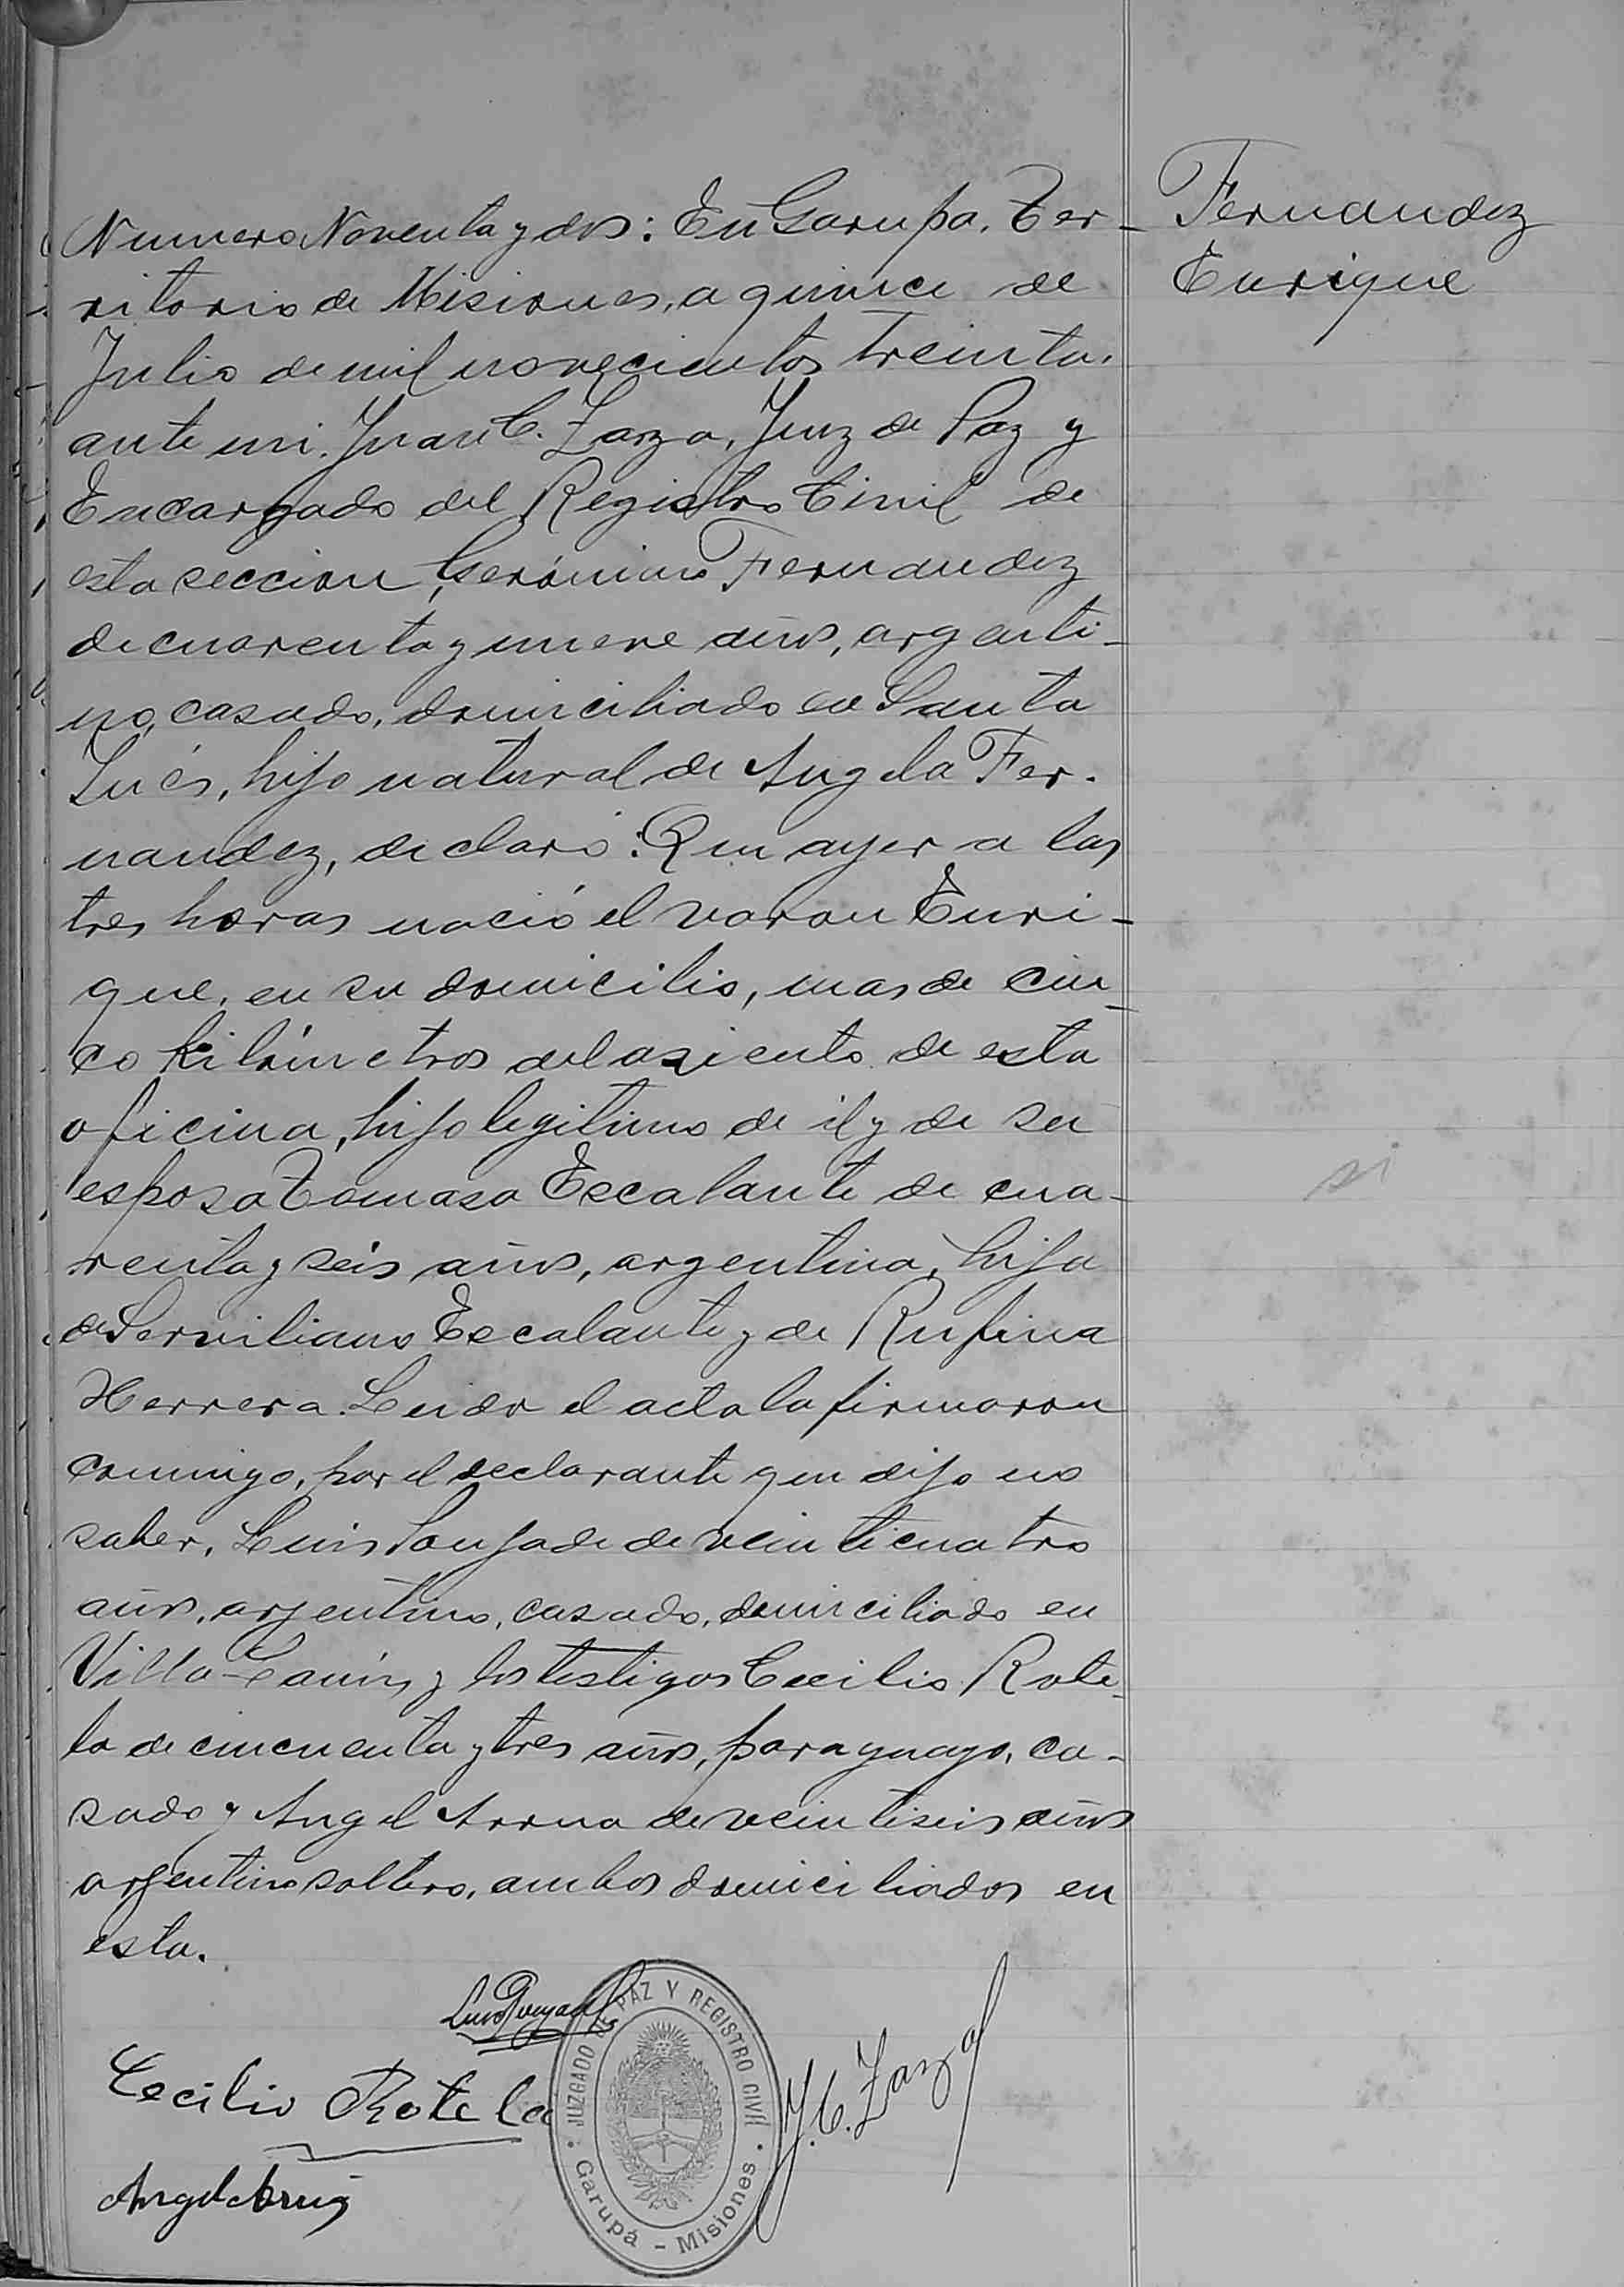 Fernandez
Enrique
Numero Noventa y dos: En Garupa, Ter-
ritorio de Misiones, a quince de
Julio de mil novecientos treinta,
ante mi, Juan C. Zarza, Juez de Paz y
Encargado del Registro Civil de
esta seccion, Gerónimo Fernandez
de cuarenta y nueve años, argenti-
no, casado, domiciliado en Santa
Inés, hijo natural de Angela Fer-
nandez, declaró: Que ayer a las
tres horas nació el varon Enri-
que, en su domicilio, mas de cin-
co kilómetros del asiento de esta
oficina, hijo legitimo de il y de su
esposa Tomasa Escalante de cua-
renta y seis años, argentina, hija
de Serviliano Escalante y de Rufina
Herrera. Leida el acta la firmaron
conmigo, por el declarante que dijo no
saber, Luis de veinticuatro
años, argentino, casado, domiciliado en
Villa Lanús y los testigos Cecilio Rote-
la de cincuenta y tres años, paraguayo, ca-
sado y Angel de veintiseis años
argentino soltero, ambos domiciliados en
esta.
si
Luis
Cecilio Rotela
Angel
J. C. Zarza
JUZGADO DE PAZ Y REGISTRO CIVIL
Garupá - Misiones